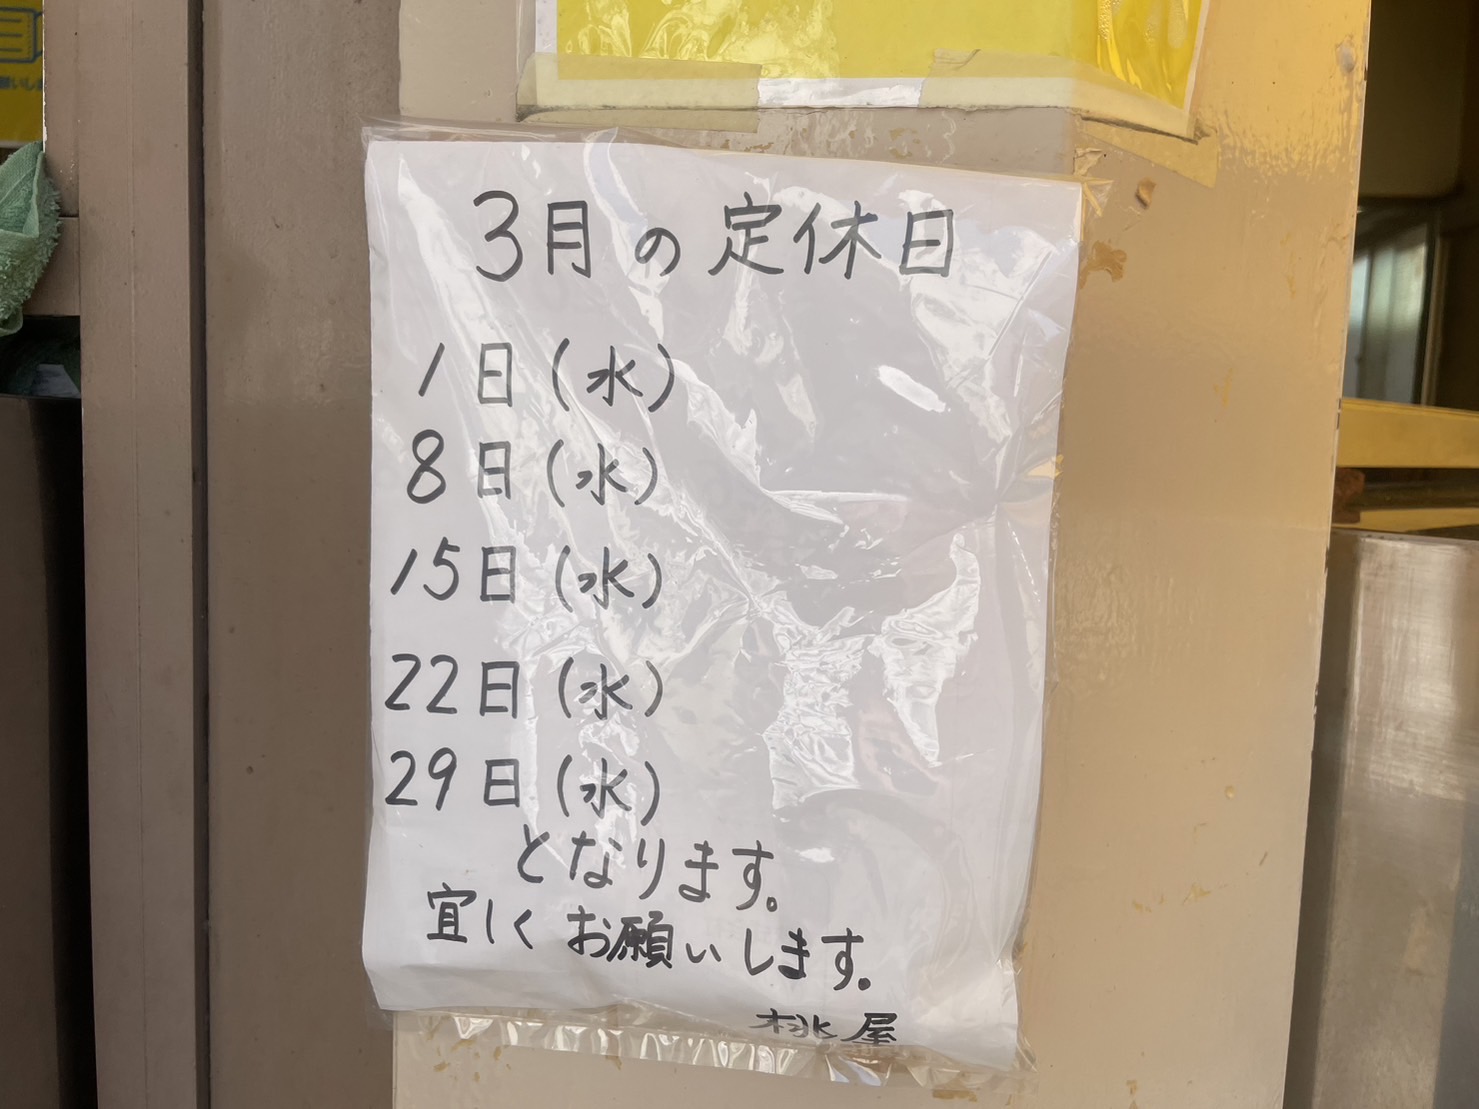 3月の定休日
1日(水)
8日(水)
15日(水)
22日(水)
29日(水)
となります。
宜しくお願いします。
桃屋